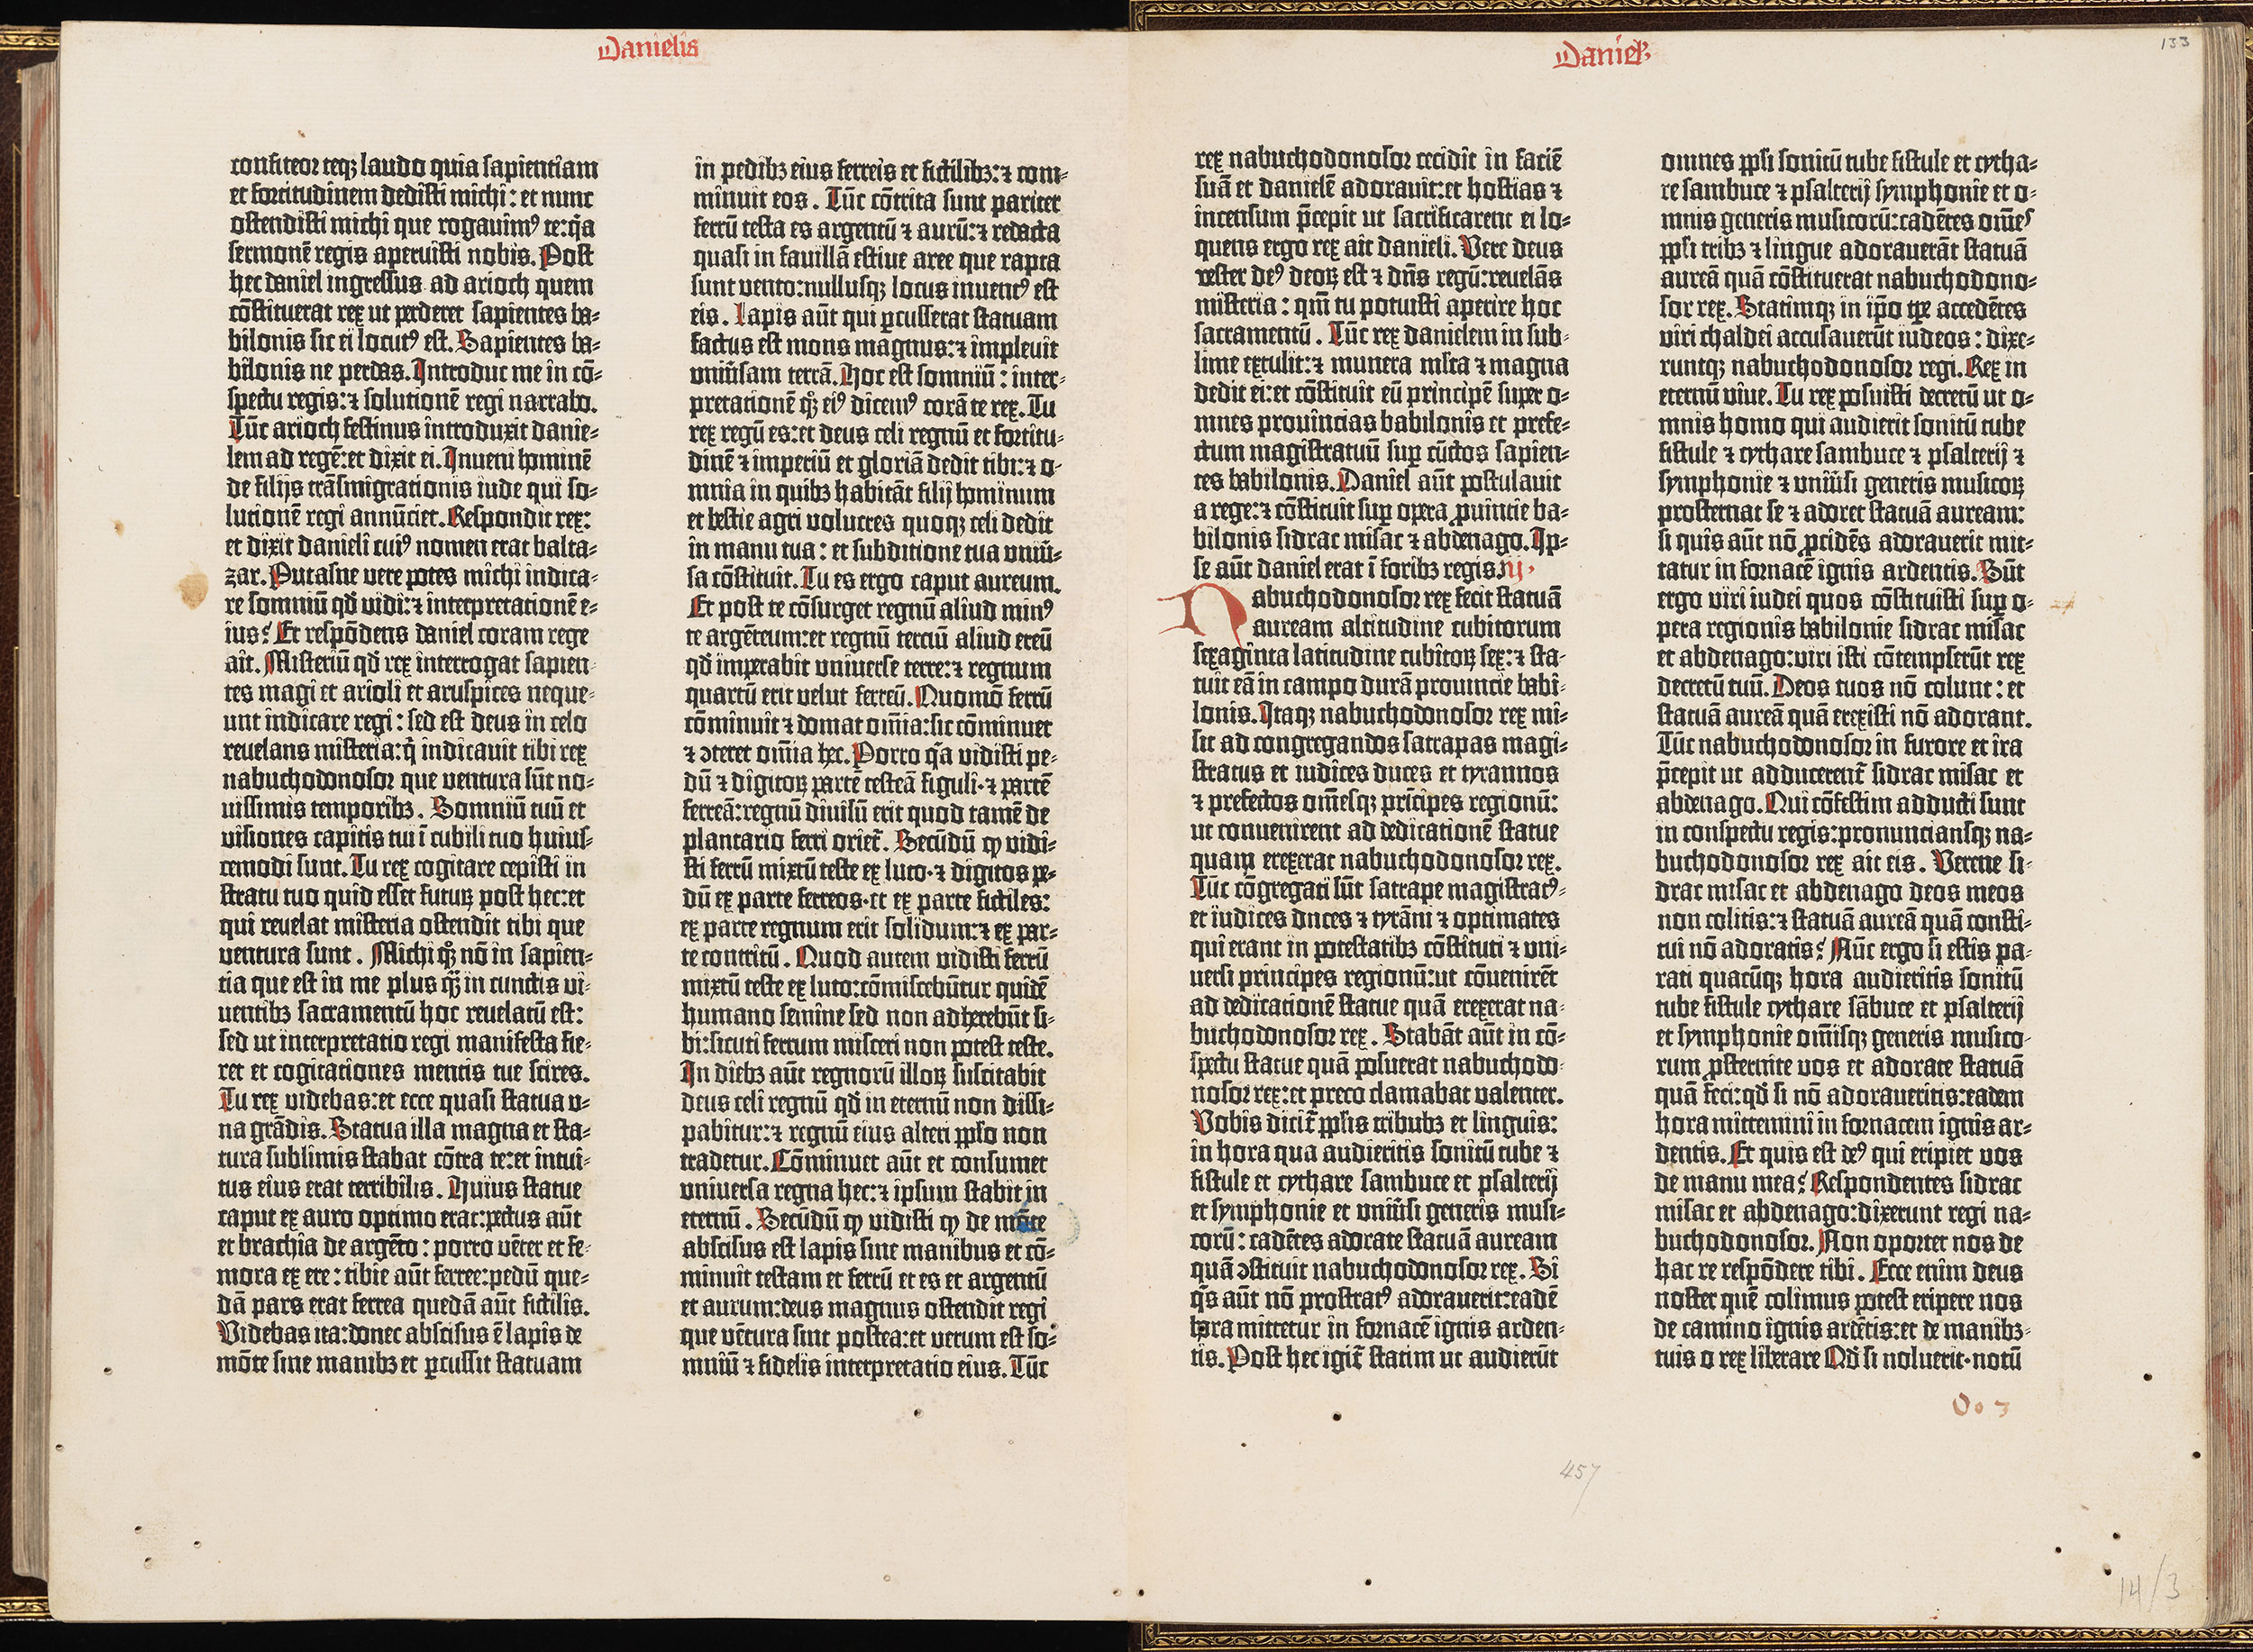 Danielis
confiteor teqʒ laudo quia sapientiam
et fortitudinem dedisti michi: et nunc
ostendisti michi que rogauimꝰ te: q̄a
sermonē regis aperuisti nobis. Post
hec daniel ingressus ad arioch quem
cōstituerat rex ut ꝑderet sapientes ba⸗
bilonis sic ei locutꝰ est. Sapientes ba⸗
bilonis ne perdas. Introduc me in cō⸗
spectu regis: ⁊ solutionē regi narrabo.
Tūc arioch festinus introduxit danie⸗
lem ad regē: et dixit ei. Inueni hominē
de filijs trāsmigrationis iude qui so⸗
lutionē regi annūciet. Respondit rex:
et dixit danieli cuiꝰ nomen erat balta⸗
zar. Putasne vere potes michi indica⸗
re somniū qd̄ vidi: ⁊ interpretationē e⸗
ius? Et respōdens daniel coram rege
ait. Misteriū qd̄ rex interrogat sapien⸗
tes magi et arioli et aruspices neque⸗
unt indicare regi: sed est deus in celo
reuelans misteria: q̄ indicauit tibi rex
nabuchodonosor que ventura sūt no⸗
uissimis temporibꝫ. Somniū tuū et
visiones capitis tui ī cubili tuo huius⸗
cemodi sunt. Tu rex cogitare cepisti in
stratu tuo quid esset futurꝝ post hec: et
qui reuelat misteria ostendit tibi que
ventura sunt. Michi qͦꝫ nō in sapien⸗
tia que est in me plus qᷓꝫ in cunctis vi⸗
uentibꝫ sacramentū hoc reuelatū est:
sed ut interpretatio regi manifesta fie⸗
ret et cogitationes mentis tue scires.
Tu rex videbas: et ecce quasi statua v⸗
na grādis. Statua illa magna et sta⸗
tura sublimis stabat cōtra te: et intui⸗
tus eius erat terribilis. Huius statue
caput ex auro optimo erat: pectus aūt
et brachia de argēto: porro vēter et fe⸗
mora ex ere: tibie aūt ferree: pedū que⸗
dā pars erat ferrea quedā aūt fictilis.
Videbas ita: donec abscisus ē lapis de
mōte sine manibꝫ et ꝑcussit statuam
in pedibꝫ eius ferreis et fictilibꝫ: ⁊ com⸗
minuit eos. Tūc cōtrita sunt pariter
ferrū testa es argentū ⁊ aurū: ⁊ redacta
quasi in fauillā estiue aree que rapta
sunt vento: nullusqʒ locus inuentꝰ est
eis. Lapis aūt qui ꝑcusserat statuam
factus est mons magnus: ⁊ impleuit
vniūsam terrā. Hoc est somniū: inter⸗
pretationē qͦꝫ eiꝰ dicemꝰ corā te rex. Tu
rex regū es: et deus celi regnū et fortitu⸗
dinē ⁊ imperiū et gloriā dedit tibi: ⁊ o⸗
mnia in quibꝫ habitāt filij hominum
et bestie agri volucres quoqʒ celi dedit
in manu tua: et sub ditione tua vniū⸗
sa cōstituit. Tu es ergo caput aureum.
Et post te cōsurget regnū aliud minꝰ
te argēteum: et regnū terciū aliud ereū
qd̄ imperabit vniuerse terre: ⁊ regnum
quartū erit velut ferreū. Quomō ferrū
cōminuit ⁊ domat om̄ia: sic cōminuet
⁊ ↄteret om̄ia hec. Porro q̄a vidisti pe⸗
dū ⁊ digitoꝝ partē testeā figuli· ⁊ partē
ferreā: regnū diuisū erit quod tamē de
plantario ferri oriet̄. Secūdū ꝙ vidi⸗
sti ferrū mixtū teste ex luto· ⁊ digitos pe⸗
dū ex parte ferreos· et ex parte fictiles:
ex parte regnum erit solidum: ⁊ ex par⸗
te contritū. Quod autem vidisti ferrū
mixtū teste ex luto: cōmiscebūtur quidē
humano semine sed non adherebūt si⸗
bi: sicuti ferrum misceri non potest teste.
In diebꝫ aūt regnorū illoꝝ suscitabit
deus celi regnū qd̄ in eternū non dissi⸗
pabitur: ⁊ regnū eius alteri pp̄lo non
tradetur. Cōminuet aūt et consumet
vniuersa regna hec: ⁊ ipsum stabit in
eternū. Secūdū ꝙ vidisti ꝙ de mōte
abscisus est lapis sine manibus et cō⸗
minuit testam et ferrū et es et argentū
et aurum: deus magnus ostendit regi
que vētura sint postea: et verum est so⸗
mniū ⁊ fidelis interpretatio eius. Tūc
Danieꝉ
133
rex nabuchodonosor cecidit in faciē
suā et danielē adorauit: et hostias ⁊
incensum p̄cepit ut sacrificarent ei lo⸗
quens ergo rex ait danieli. Vere deus
vester deꝰ deoꝝ est ⁊ dn̄s regū: reuelās
misteria: qm̄ tu potuisti aperire hoc
sacramentū. Tūc rex danielem in sub⸗
lime extulit: ⁊ munera ml̄ta ⁊ magna
dedit ei: et cōstituit eū principē super o⸗
mnes prouincias babilonis et prefe⸗
ctum magistratuū suꝑ cūctos sapien⸗
tes babilonis. Daniel aūt postulauit
a rege: ⁊ cōstituit suꝑ opera ꝓuincie ba⸗
bilonis sidrac misac ⁊ abdenago. Ip⸗
se aūt daniel erat ī foribꝫ regis. iij.
Nabuchodonosor rex fecit statuā
auream altitudine cubitorum
sexaginta latitudine cubitoꝝ sex: ⁊ sta⸗
tuit eā in campo durā prouincie babi⸗
lonis. Itaqʒ nabuchodonosor rex mi⸗
sit ad congregandos satrapas magi⸗
stratus et iudices duces et tyrannos
⁊ prefectos om̄esqʒ prīcipes regionū:
ut conuenirent ad dedicationē statue
quam erexerat nabuchodonosor rex.
Tūc cōgregati sūt satrape magistratꝰ⸗
et iudices duces ⁊ tyrāni ⁊ optimates
qui erant in potestatibꝫ cōstituti ⁊ vni⸗
uersi principes regionū: ut cōuenirēt
ad dedicationē statue quā erexerat na⸗
buchodonosor rex. Stabāt aūt in cō⸗
spectu statue quā posuerat nabuchodo⸗
nosor rex: et preco clamabat valenter.
Vobis dicit̄ pp̄lis tribubꝫ et linguis:
in hora qua audieritis sonitū tube ⁊
fistule et cythare sambuce et psalterij
et symphonie et vniūsi generis musi⸗
corū: cadētes adorate statuā auream
quā ↄstituit nabuchodonosor rex. Si
q̄s aūt nō prostratꝰ adorauerit: eadē
hora mittetur in fornacē ignis arden⸗
tis. Post hec igit̄ statim ut audierūt
omnes pp̄li sonitū tube fistule et cytha⸗
re sambuce ⁊ psalterij symphonie et o⸗
mnis generis musicorū: cadētes om̄es
pp̄li tribꝫ ⁊ lingue adorauerāt statuā
aureā quā cōstituerat nabuchodono⸗
sor rex. Statimqʒ in ip̄o tp̄e accedētes
viri chaldei accusauerūt iudeos: dixe⸗
runtqʒ nabuchodonosor regi. Rex in
eternū viue. Tu rex posuisti decretū ut o⸗
mnis homo qui audierit sonitū tube
fistule ⁊ cythare sambuce ⁊ psalterij ⁊
symphonie ⁊ vniūsi generis musicoꝝ
prosternat se ⁊ adoret statuā auream:
si quis aūt nō ꝓcidēs adorauerit mit⸗
tatur in fornacē ignis ardentis. Sūt
ergo viri iudei quos cōstituisti suꝑ o⸗
pera regionis babilonie sidrac misac
et abdenago: viri isti cōtempserūt rex
decretū tuū. Deos tuos nō colunt: et
statuā aureā quā erexisti nō adorant.
Tūc nabuchodonosor in furore et ira
p̄cepit ut adducerent̄ sidrac misac et
abdenago. Qui cōfestim adducti sunt
in conspectu regis: pronunciansqʒ na⸗
buchodonosor rex ait eis. Verene si⸗
drac misac et abdenago deos meos
non colitis: ⁊ statuā aureā quā consti⸗
tui nō adoratis? Nūc ergo si estis pa⸗
rati quacūqʒ hora audieritis sonitū
tube fistule cythare sābuce et psalterij
et symphonie om̄isqʒ generis musico⸗
rum ꝓsternite vos et adorate statuā
quā feci: qd̄ si nō adoraueritis: eadem
hora mittemini in fornacem ignis ar⸗
dentis. Et quis est deꝰ qui eripiet vos
de manu mea? Respondentes sidrac
misac et abdenago: dixerunt regi na⸗
buchodonosor. Non oportet nos de
hac re respōdere tibi. Ecce enim deus
noster quē colimus potest eripere nos
de camino ignis ardētis: et de manibꝫ⸗
tuis o rex liberare Qd̄ si noluerit· notū
Oo 3
457
14/3